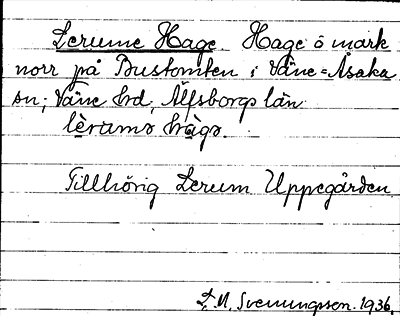 Lerume Hage. Hage ö mark
norr på Bustomten i Väne-Åsaka
sn; Väne hrd, Älfsborgs län.
lèrums hàgə.
Tillhörig Lerum Uppegården
L. M. Svenungsson. 1936.